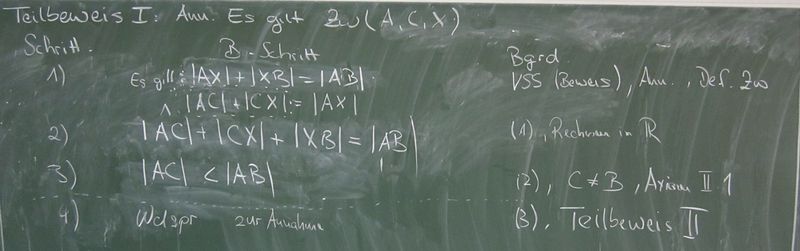 Teilbeweis I: Ann. Es gilt Zw(A, C, X)
Schritt. B-Schritt Bgrd
1) Es gilt: |AX|+|XB|=|AB| VSS (Beweis), Ann., Def. Zw
∧ |AC|+|CX|=|AX|
2) |AC|+|CX|+|XB|=|AB| (1), Rechnen in ℝ
3) |AC| < |AB| (2), C≠B, Axiom II 1
4) Wdspr zur Annahme (3), Teilbeweis II